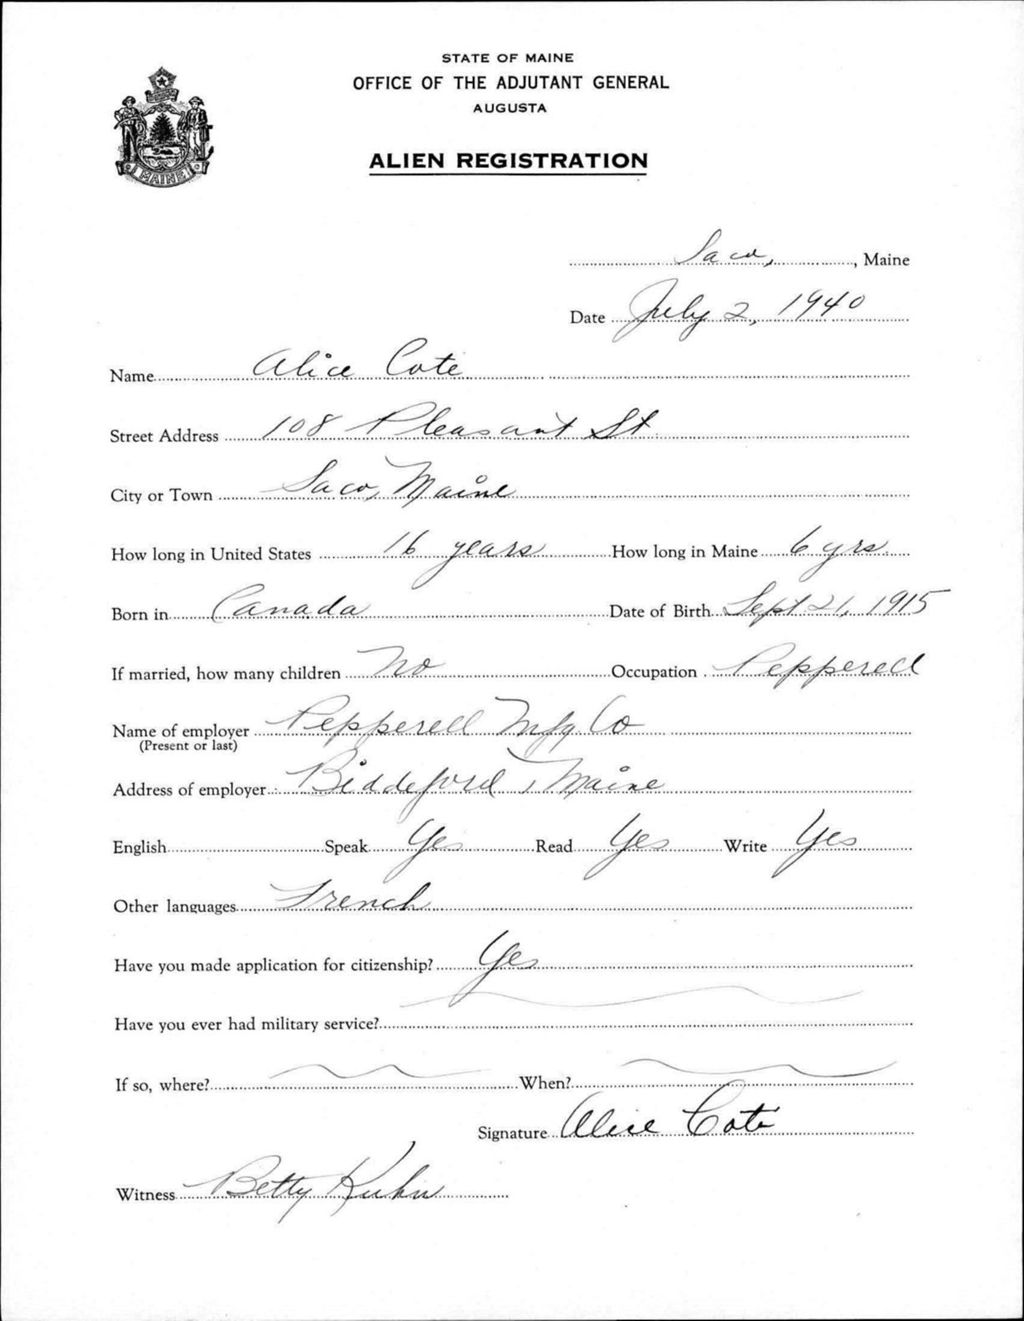 STATE OF MAINE
OFFICE OF THE ADJUTANT GENERAL
AUGUSTA
ALIEN REGISTRATION
MAINE
Saco, , Maine
Date July 2, 1940
Name Alice Cote
Street Address 108 Pleasant St.
City or Town Saco, Maine
How long in United States 16 years How long in Maine 6 yrs.
Born in Canada Date of Birth Sept 21, 1915
If married, how many children No Occupation Pepperell
Name of employer Pepperell Mfg. Co
(Present or last)
Address of employer Biddeford, Maine
English Speak Yes Read Yes Write Yes
Other languages French
Have you made application for citizenship? Yes
Have you ever had military service?
If so, where? When?
Signature Alice Cote
Witness Betty Kuhn